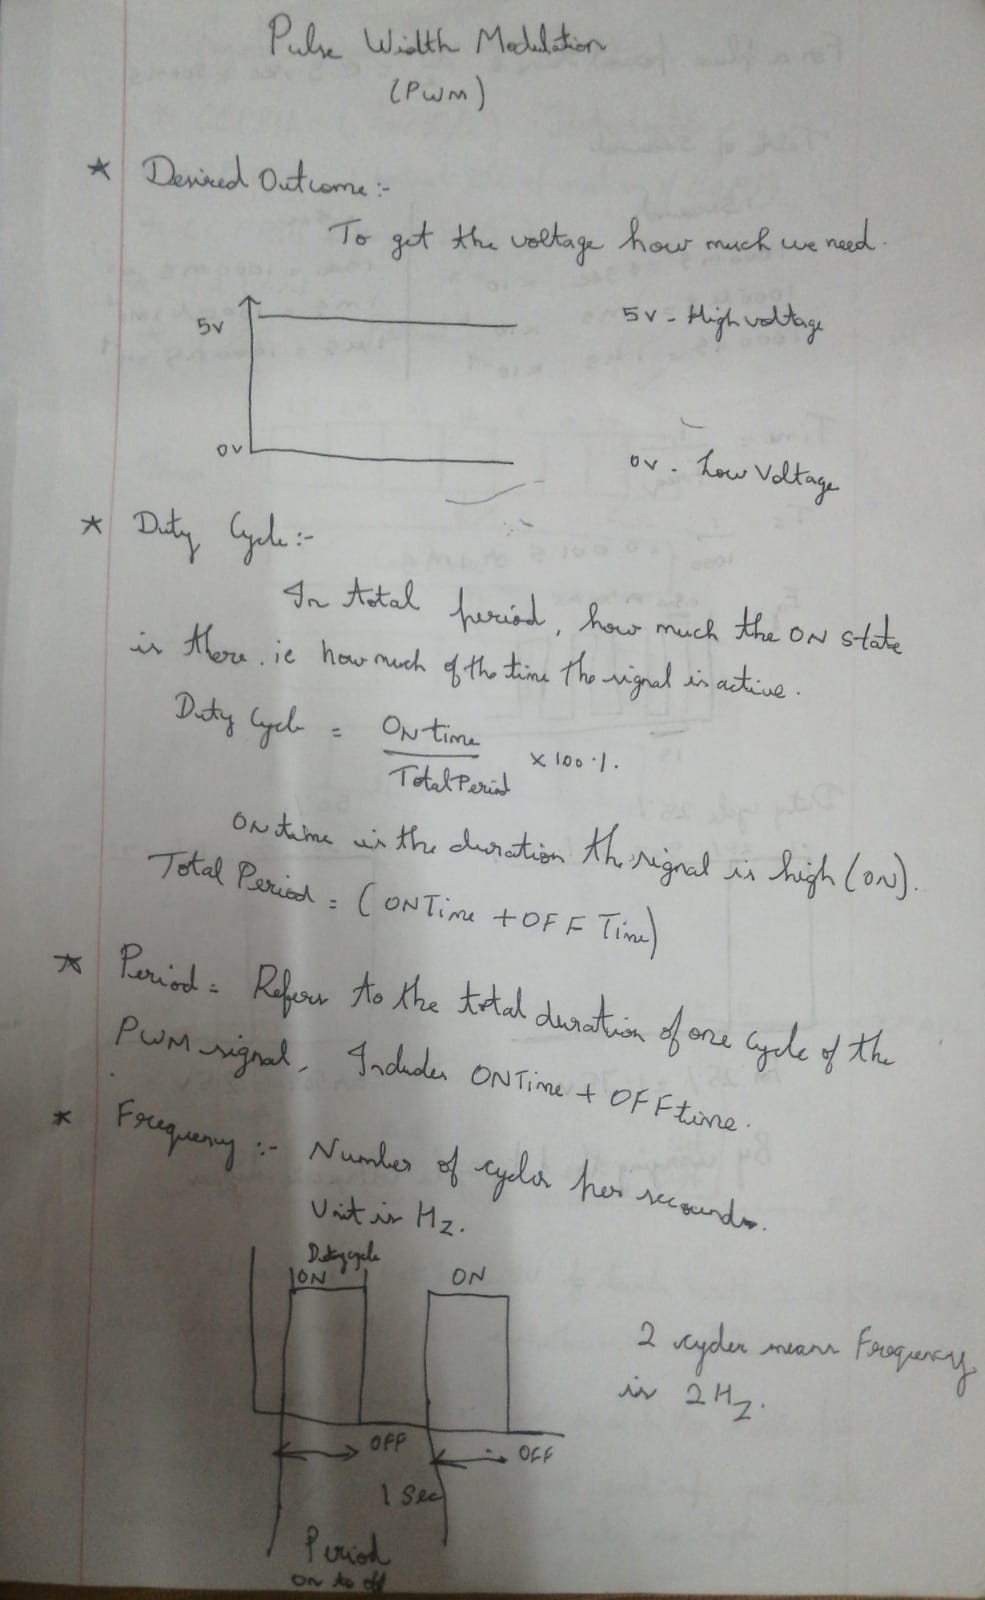 Pulse Width Modulation
(PWM)
* Desired Outcome :-
To get the voltage how much we need.
5v
5v - High voltage
0v
0v - Low Voltage
* Duty Cycle :-
In total period, how much the ON state
is there. ie how much of the time the signal is active.
Duty Cycle = ON time / Total Period × 100 %.
ON time is the duration the signal is high (ON).
Total Period = (ON Time + OFF Time)
* Period = Refers to the total duration of one cycle of the
PWM signal, Includes ON Time + OFF time.
* Frequency :- Number of cycles per second.
Unit is Hz.
Duty cycle
ON
ON
2 cycles means Frequency
is 2 Hz.
OFF
OFF
1 Sec
Period
on to off